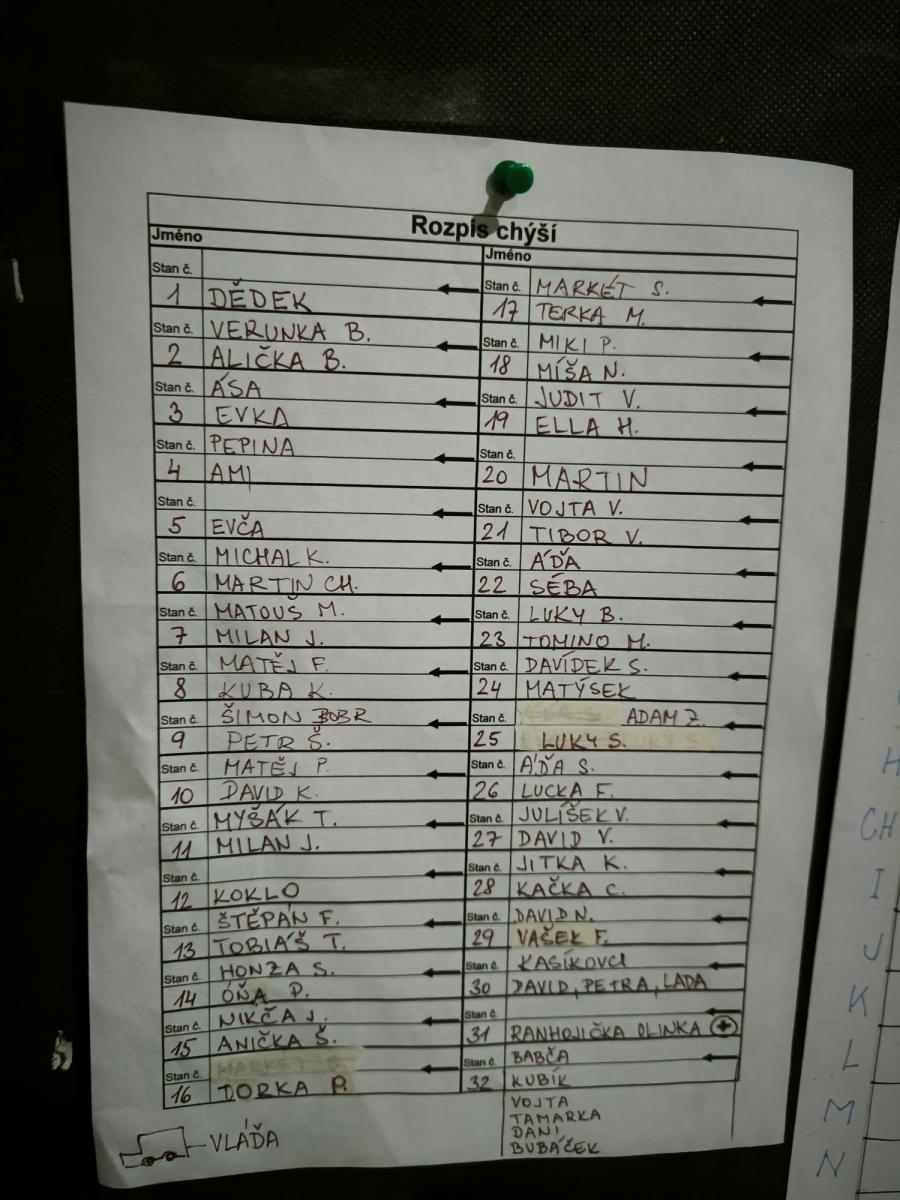 Rozpis chýší
Jméno
Stan č.
1 DĚDEK
Stan č. VERUNKA B.
2 ALIČKA B.
Stan č. ÁSA
3 EVKA
Stan č. PEPINA
4 AMI
Stan č.
5 EVČA
Stan č. MICHAL K.
6 MARTIN CH.
Stan č. MATOUŠ M.
7 MILAN J.
Stan č. MATĚJ F.
8 KUBA K.
Stan č. ŠIMON BOBR
9 PETR Š.
Stan č. MATĚJ P.
10 DAVID K.
Stan č. MYŠÁK T.
11 MILAN J.
Stan č.
12 KOKLO
Stan č. ŠTĚPÁN F.
13 TOBIÁŠ T.
Stan č. HONZA S.
14 ÓŇA P.
Stan č. NIKČA J.
15 ANIČKA Š.
Stan č. MARKÉT S.
16 DORKA P.
VLÁĎA
Jméno
Stan č. MARKÉT S.
17 TERKA M.
Stan č. MIKI P.
18 MÍŠA N.
Stan č. JUDIT V.
19 ELLA H.
Stan č.
20 MARTIN
Stan č. VOJTA V.
21 TIBOR V.
Stan č. ÁĎA
22 SÉBA
Stan č. LUKY B.
23 TOMINO M.
Stan č. DAVÍDEK S.
24 MATÝSEK
Stan č. ADAM Z.
25 LUKY S.
Stan č. ÁĎA S.
26 LUCKA F.
Stan č. JULÍŠEK V.
27 DAVID V.
Stan č. JITKA K.
28 KAČKA C.
Stan č. DAVID N.
29 VAŠEK F.
Stan č. KASÍKOVCI
30 DAVID, PETRA, LADA
Stan č.
31 RANHOJIČKA OLINKA +
Stan č. BABČA
32 KUBÍK
VOJTA
TAMARKA
DANI
BUBÁČEK
H
CH
I
J
K
L
M
N